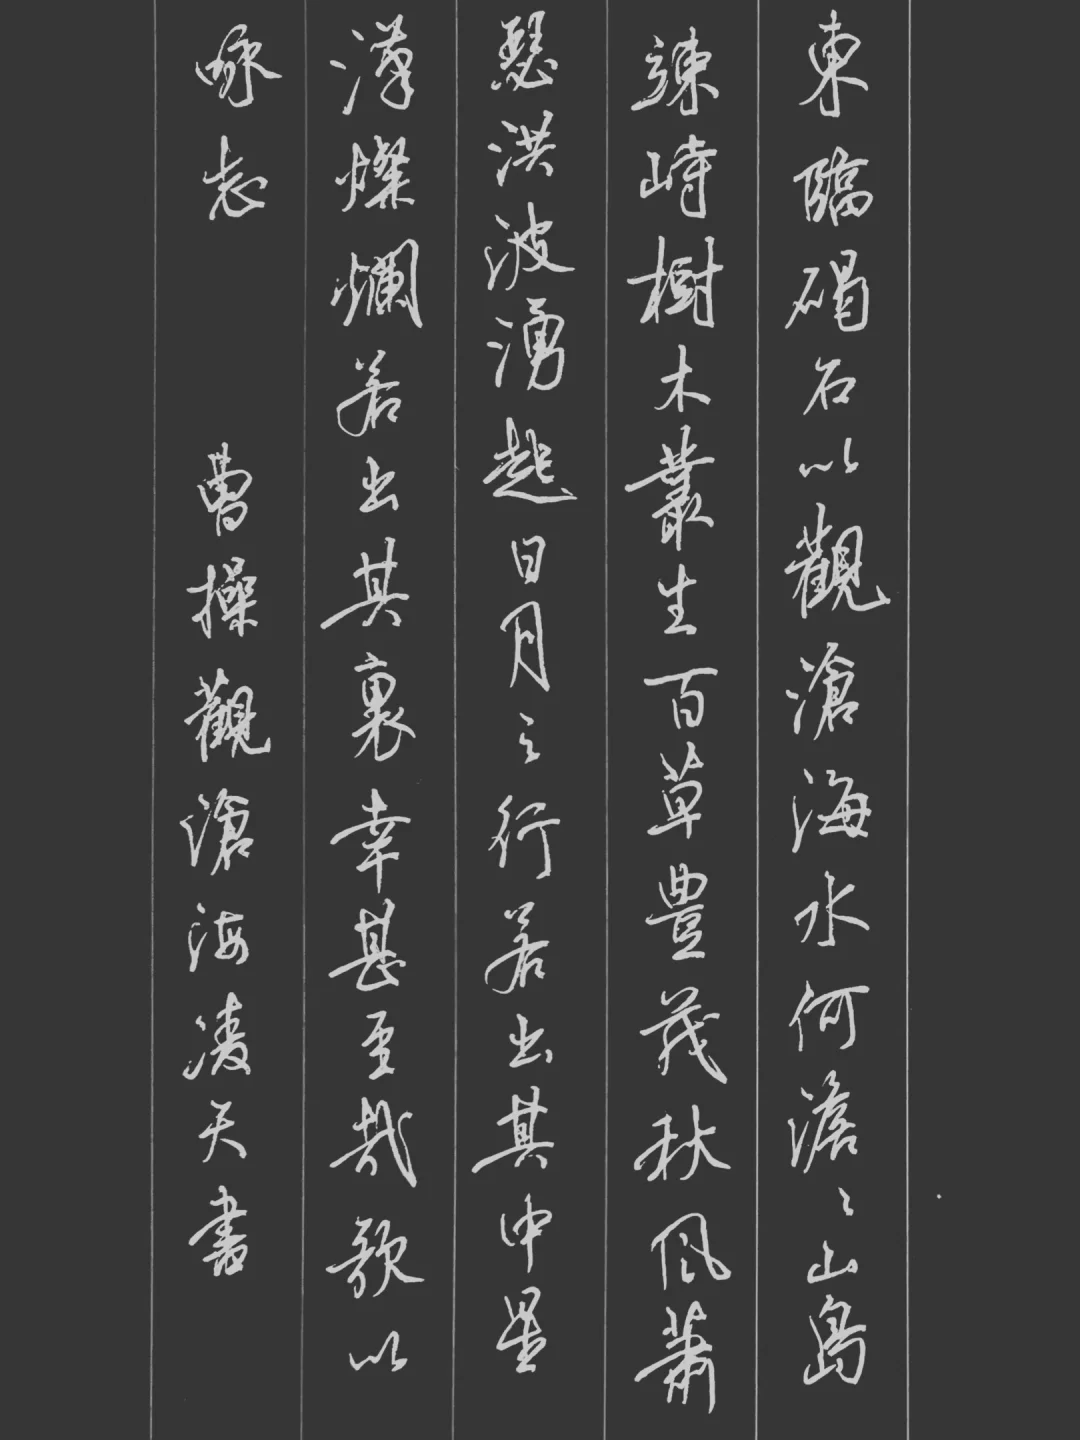 東臨碣石以觀滄海水何澹〻山島
竦峙樹木叢生百草豊茂秋風蕭
瑟洪波湧起日月之行若出其中星
漢燦爛若出其裏幸甚至哉歌以
詠志 曹操觀滄海凌天書